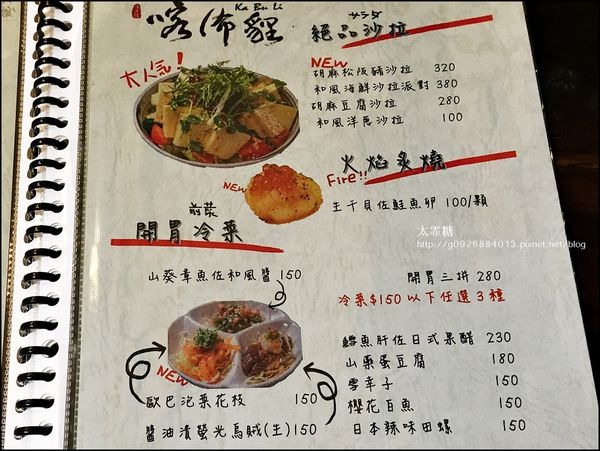 Ka Bu Li
喀佈貍
サラダ
絕品沙拉
大人氣!
NEW
胡麻松阪豬沙拉 320
和風海鮮沙拉派對 380
胡麻豆腐沙拉 280
和風洋蔥沙拉 100
火焰炙燒
NEW
Fire!!
生干貝佐鮭魚卵 100/顆
前菜
開胃冷菜
太霏糖
http://g0926884013.pixnet.net/blog
山葵章魚佐和風醬 150
開胃三拼 280
冷菜$150以下任選3種
鱈魚肝佐日式果醋 230
山藥蛋豆腐 180
NEW
雲幸子 150
歐巴泡菜花枝 150
櫻花白魚 150
醬油漬螢光烏賊(生) 150
日本辣味田螺 150